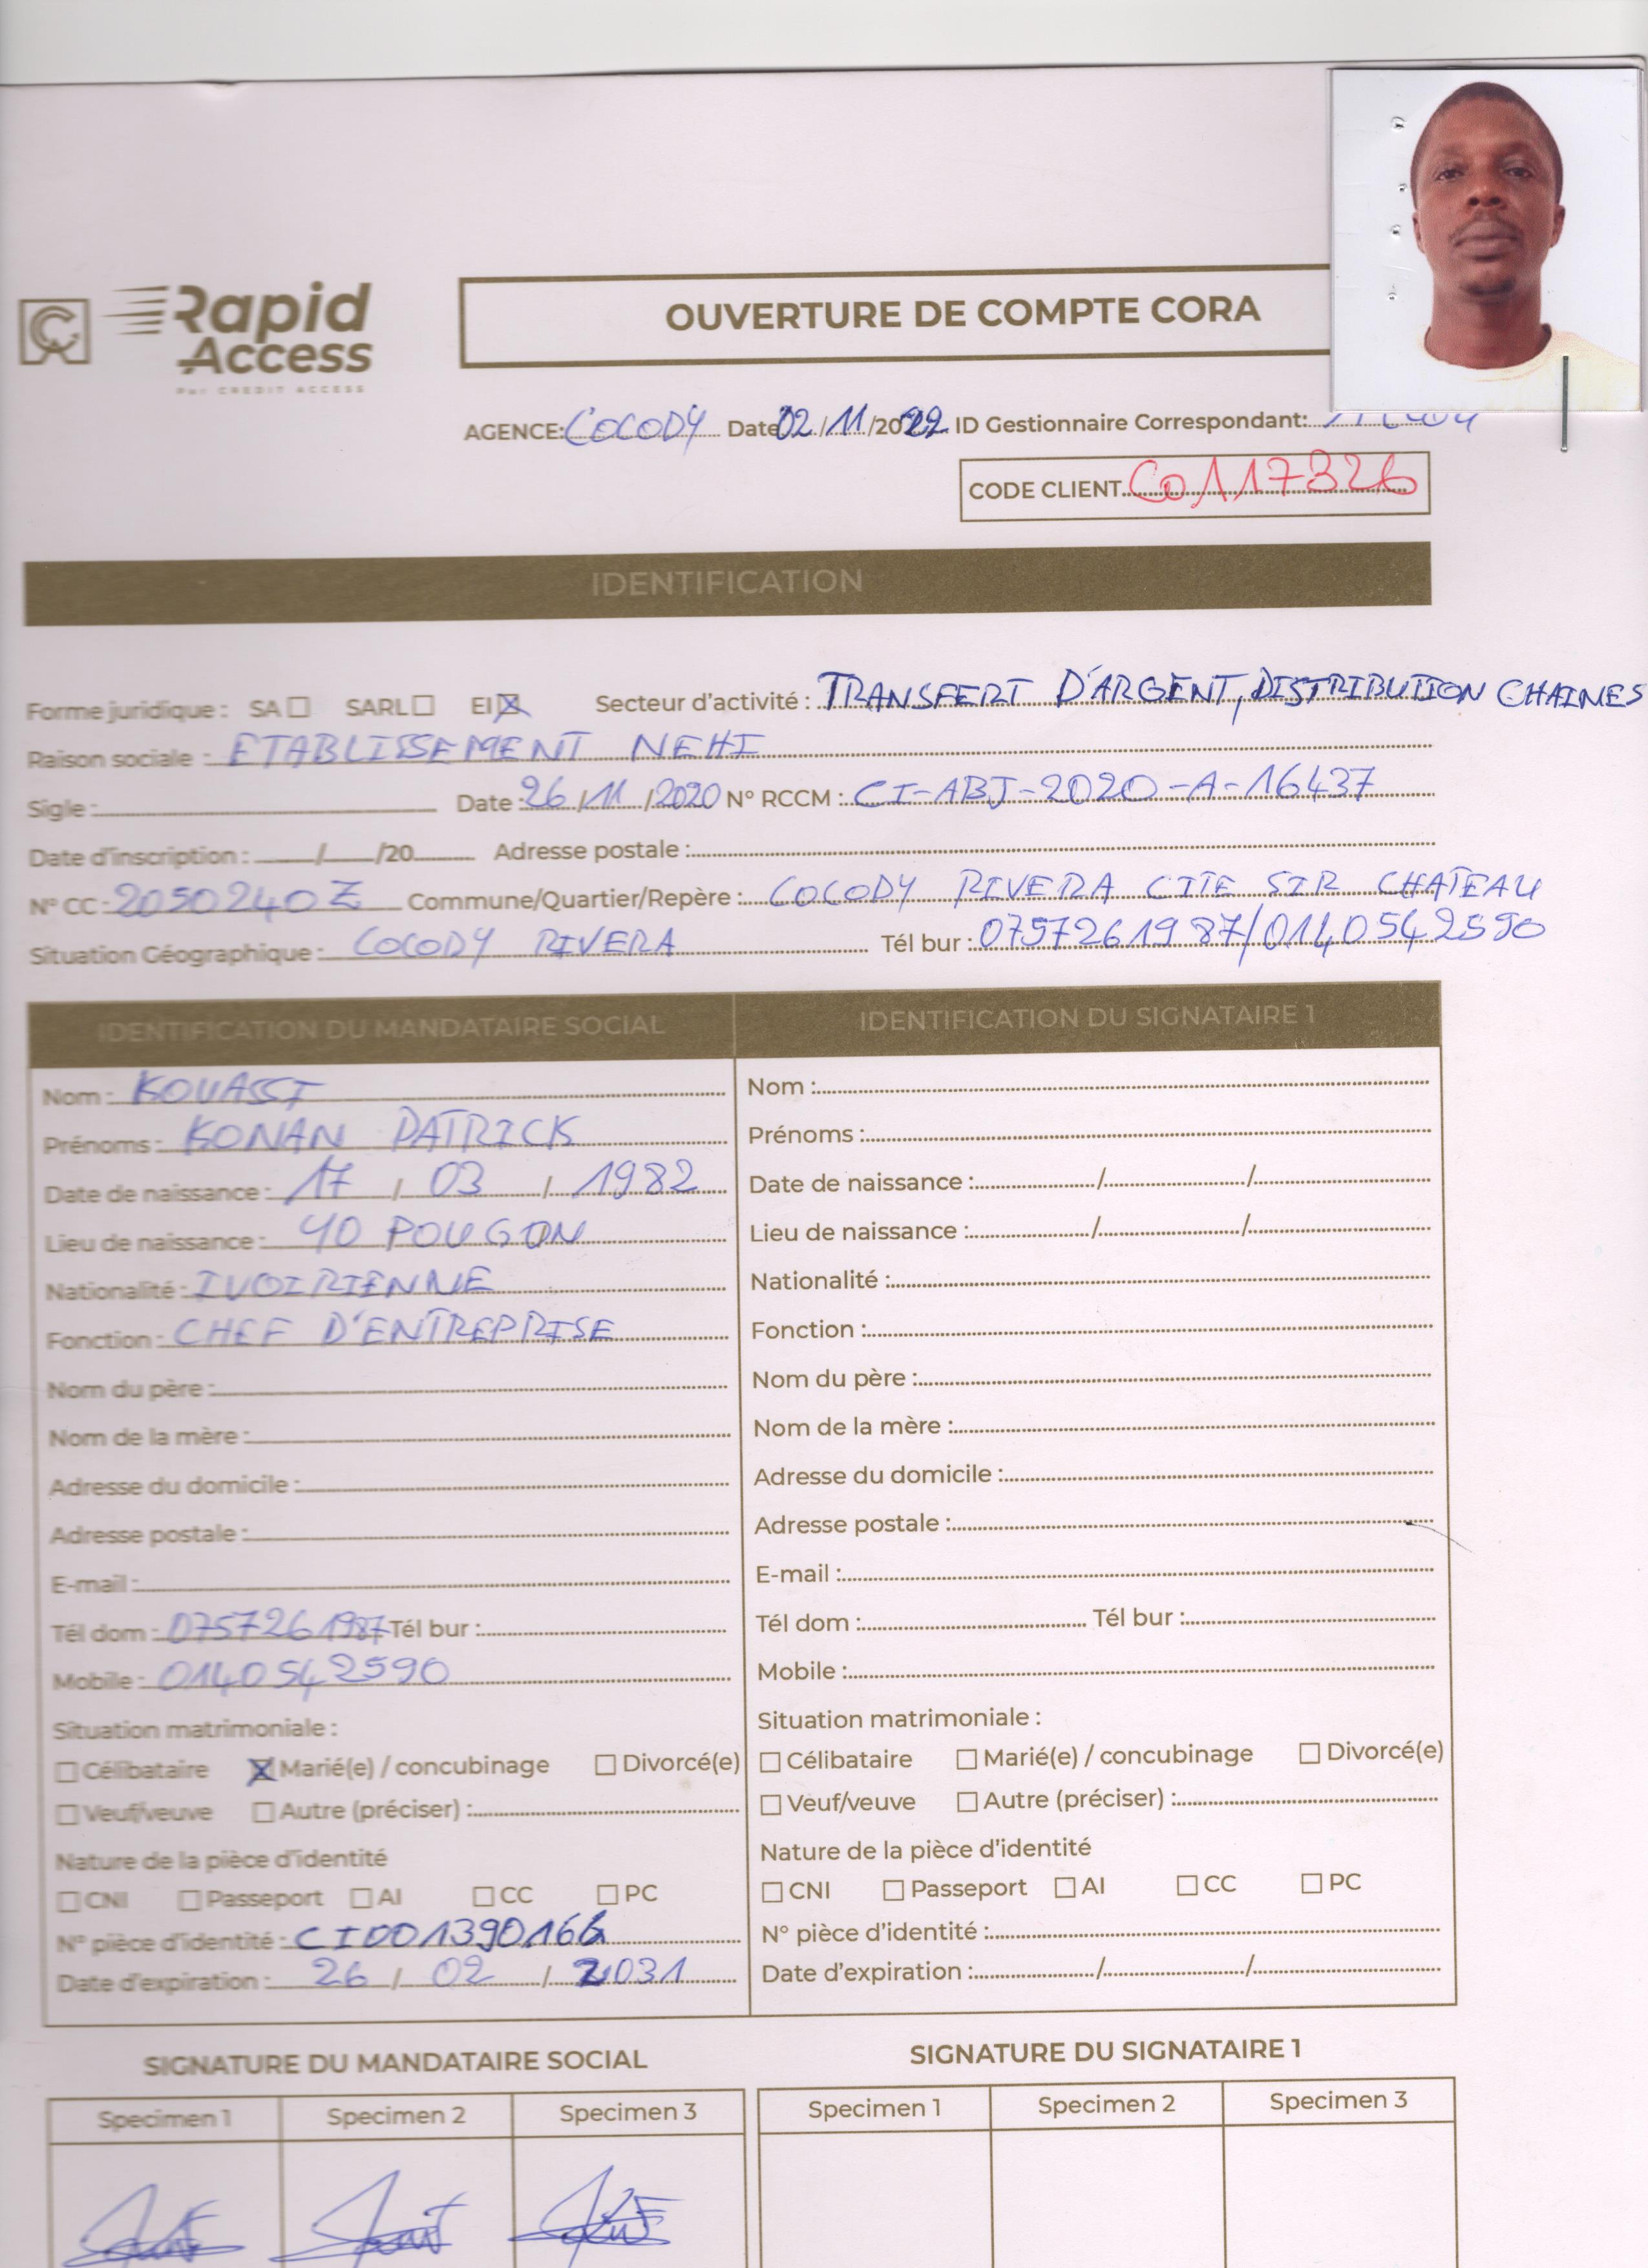 Rapid
Access
Par CREDIT ACCESS
OUVERTURE DE COMPTE CORA
AGENCE: COCODY Date 02/11/2022 ID Gestionnaire Correspondant:
CODE CLIENT CO117326
IDENTIFICATION
Forme juridique : SA □ SARL □ EI ☒ Secteur d'activité : TRANSFERT D'ARGENT, DISTRIBUTION CHAINES
Raison sociale : ETABLISSEMENT NEHI
Sigle : Date : 26/11/2020 N° RCCM : CI-ABJ-2020-A-16437
Date d'inscription : / /20 Adresse postale :
N° CC : 2050240Z Commune/Quartier/Repère : COCODY RIVERA CITE SIR CHATEAU
Situation Géographique : COCODY RIVERA Tél bur : 0757261987/0140542590
IDENTIFICATION DU MANDATAIRE SOCIAL
Nom : KOUASSI
Prénoms : KONAN PATRICK
Date de naissance : 17 / 03 / 1982
Lieu de naissance : YOPOUGON
Nationalité : IVOIRIENNE
Fonction : CHEF D'ENTREPRISE
Nom du père :
Nom de la mère :
Adresse du domicile :
Adresse postale :
E-mail :
Tél dom : 0757261987 Tél bur :
Mobile : 0140542590
Situation matrimoniale :
□ Célibataire ☒ Marié(e) / concubinage □ Divorcé(e)
□ Veuf/veuve □ Autre (préciser) :
Nature de la pièce d'identité
□ CNI □ Passeport □ AI □ CC □ PC
N° pièce d'identité : CI001390166
Date d'expiration : 26 / 02 / 2031
IDENTIFICATION DU SIGNATAIRE 1
Nom :
Prénoms :
Date de naissance : / /
Lieu de naissance : / /
Nationalité :
Fonction :
Nom du père :
Nom de la mère :
Adresse du domicile :
Adresse postale :
E-mail :
Tél dom : Tél bur :
Mobile :
Situation matrimoniale :
□ Célibataire □ Marié(e) / concubinage □ Divorcé(e)
□ Veuf/veuve □ Autre (préciser) :
Nature de la pièce d'identité
□ CNI □ Passeport □ AI □ CC □ PC
N° pièce d'identité :
Date d'expiration : / /
SIGNATURE DU MANDATAIRE SOCIAL
Specimen 1 Specimen 2 Specimen 3
SIGNATURE DU SIGNATAIRE 1
Specimen 1 Specimen 2 Specimen 3